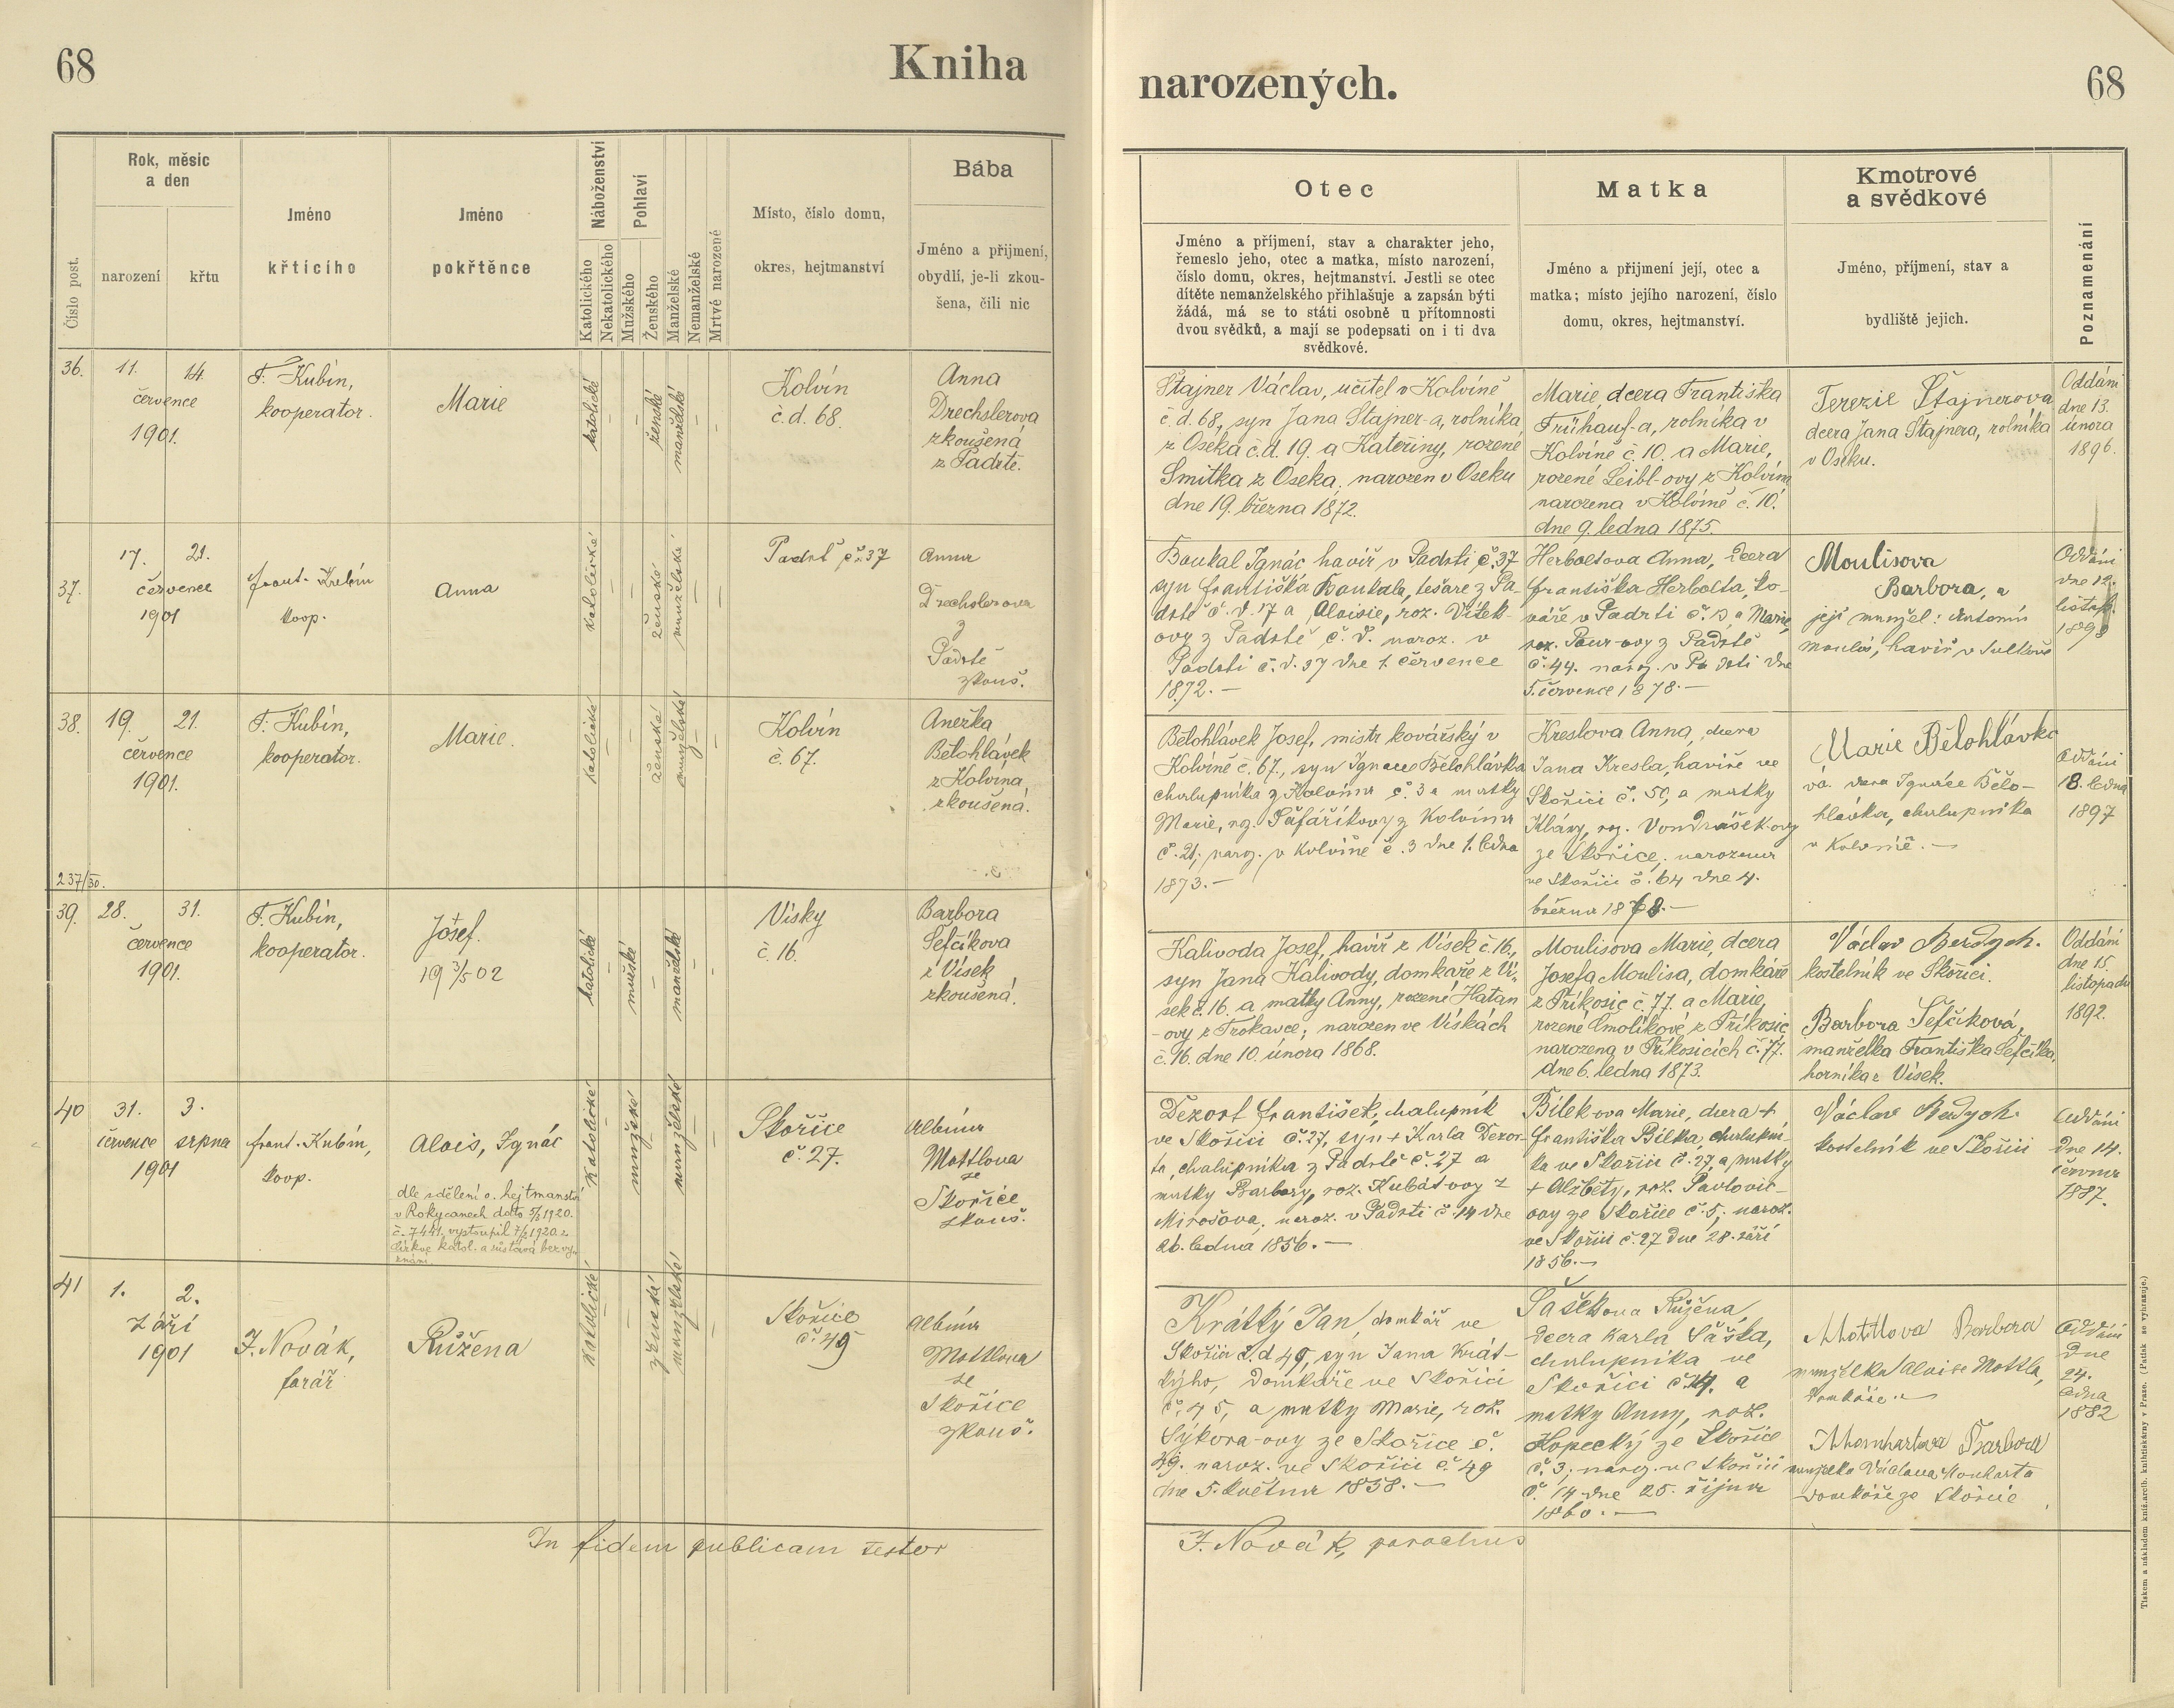 68
Kniha
narozených.
68
Číslo post.
Rok, měsíc
a den
narození
křtu
Jméno
křtícího
Jméno
pokřtěnce
Náboženství
Katolického
Nekatolického
Pohlaví
Mužského
Ženského
Manželské
Nemanželské
Mrtvé narozené
Místo, číslo domu,
okres, hejtmanství
Bába
Jméno a přijmení,
obydlí, je-li zkou-
šena, čili nic
Otec
Jméno a příjmení, stav a charakter jeho,
řemeslo jeho, otec a matka, místo narození,
číslo domu, okres, hejtmanství. Jestli se otec
dítěte nemanželského přihlašuje a zapsán býti
žádá, má se to státi osobně u přítomnosti
dvou svědků, a mají se podepsati on i ti dva
svědkové.
Matka
Jméno a přijmení její, otec a
matka; místo jejího narození, číslo
domu, okres, hejtmanství.
Kmotrové
a svědkové
Jméno, příjmení, stav a
bydliště jejich.
Poznamenání
36.
11. 14.
července
1901.
F. Kubín,
kooperator.
Marie
katolické
ženské
manželské
Kolvín
č.d. 68.
Anna
Drechslerova
zkoušená
z Padrtě.
Štajner Václav, učitel v Kolvíně
č.d. 68, syn Jana Štajner-a, rolníka
z Oseka č.d. 19. a Kateřiny, rozené
Smitka z Oseka, narozen v Oseku
dne 19. března 1872.
Marie, dcera Františka
Frühauf-a, rolníka v
Kolvíně č. 10. a Marie,
rozené Leibl-ovy z Kolvína
narozena v Kolvíně č. 10.
dne 9. ledna 1875.
Terezie Štajnerova
dcera Jana Štajnera, rolníka
v Oseku.
Oddáni
dne 13.
února
1896.
37.
17. 21.
července
1901
frant. Kubín
koop.
Anna
katolické
ženské
manželské
Padrť č. 37
Anna
Drechslerova
z
Padrtě
zkouš.
Boukal Ignác havíř v Padrti č. 37
syn Františka Boukala, tesaře z Pa-
drtě č. d. 17 a Aloisie, roz. Vítek-
ovy z Padrtě č. d. naroz. v
Padrti č. d. 37 dne 1. července
1872. —
Herboltova Anna, dcera
františka Herbolta, ko-
váře v Padrti č. 13 a Marie,
roz. Paur-ovy z Padrtě
č. 44. naroz. v Padrti dne
5. července 1878. —
Moulisova
Barbora, a
její manžel: Antonín
Moulis, havíř v
Oddáni
dne 12.
listop.
38.
19. 21.
července
1901.
F. Kubín,
kooperator.
Marie.
katolické
ženské
manželské
Kolvín
č. 67.
Anežka
Bělohlávek
z Kolvína,
zkoušená.
237/30.
Bělohlávek Josef, mistr kovářský v
Kolvíně č. 67., syn Ignace Bělohlávka
chalupníka z Kolvína č. 3 a matky
Marie, roz. Šafaříkovy z Kolvína
č. 21; naroz. v Kolvíně č. 3 dne 1. ledna
1873. —
Kreslova Anna, dcera
Jana Kresla, havíře ve
Skořici č. 50, a matky
Kláry, roz. Vondrášek-ovy
ze Skořice, narozena
ve Skořici č. 64 dne 4.
března 1878. —
Marie Bělohlávko
vá. dcera Ignáce Bělo-
hlávka, chalupníka
v Kolvíně. —
Oddáni
18. ledna
1897
39.
28. 31.
července
1901.
F. Kubín,
kooperator.
Josef.
19 3/5 02
katolické
mužské
manželské
Vísky
č. 16.
Barbora
Šefčíkova
z Vísek
zkoušená.
Kalivoda Josef, havíř z Vísek č. 16.,
syn Jana Kalivody, domkáře z Ví-
sek č. 16. a matky Anny, rozené Hatan
-ovy z Trokavce; narozen ve Vískách
č. 16. dne 10. února 1868.
Moulisova Marie, dcera
Josefa Moulisa, domkáře
z Příkosic č. 77. a Marie,
rozené Smolíkové, z Příkosic
narozena v Příkosicích č. 77.
dne 6. ledna 1873.
Václav Berdych.
kostelník ve Skořici.
Barbora Šefčíková,
manželka Františka Šefčíka,
horníka z Vísek.
Oddáni
dne 15.
listopadu
1892.
40
31. 3.
července srpna
1901
frant. Kubín,
koop.
Alois, Ignác
dle sdělení o. hejtmanství
v Rokycanech dato 1920.
č. 7441, vystoupil 1920 z
církve katol. a zůstává bez vy-
znání
katolické
mužské
manželské
Skořice
č. 27.
Albína
Mottlova
ze
Skořice
zkouš.
Dezort František, chalupník
ve Skořici č. 27, syn + Karla Dezor-
ta, chalupníka z Padrtě č. 27 a
matky Barbory, roz. Kubát-ovy z
Mirošova, naroz. v Padrti č. 14 dne
26. ledna 1856. —
Bílek ova Marie, dcera +
františka Bílka, chalupní-
ka ve Skořici č. 27, a matky
+ Alžběty, roz. Pavlovic-
ovy ze Skořice č. 5, naroz.
ve Skořici č. 27 dne 28. září
1856. —
Václav Berdych.
kostelník ve Skořici
Oddáni
dne 14.
června
1887.
41
1. 2.
září
1901
J. Novák,
farář
Růžena
katolické
ženské
manželské
Skořice
č. 49
Albína
Mottlova
ze
Skořice
zkouš.
Krátký Jan, domkář ve
Skořici č.d 49, syn Jana Krát-
kýho, domkáře ve Skořici
č. 45, a matky Marie, roz.
Sýkora-ovy ze Skořice č.
49. naroz. ve Skořici č. 49
dne 5. května 1858. —
Šaškova Růžena,
dcera Karla Šaška,
chalupníka ve
Skořici č. 14. a
matky Anny, roz.
Kopecký ze Skořice
č. 3, naroz. ve Skořici
č. 14 dne 25. října
1860. —
Mottlova Barbora
manželka Aloise Mottla,
domkáře. —
Barbora
manželka Václava
domkáře ze Skořice
Oddáni
dne
24.
ledna
1882
In fidem publicam testor
J. Novák, parochus
Tiskem a nákladem kníž.arcib. knihtiskárny v Praze. (Patisk se vyhrazuje.)